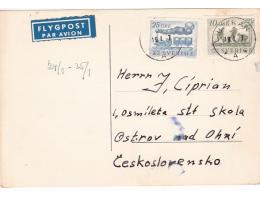 FLYGPOST
PAR AVION
25 ÖRE
SVERIGE
SVERIGE
24/1 - 25/1
Herrn J. Ciprian
1, osmíleta stř skola
Ostrov nad Ohní
Československo